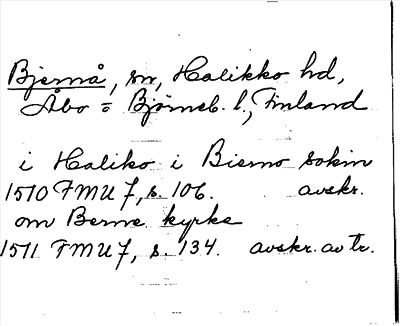 Bjernå, sn, Halikko hd,
Åbo = Björneb. l., Finland
i Haliko i Bierno sokin
1510 FMU 7, s. 106. avskr.
om Berne kyrke
1511 FMU 7, s. 134. avskr. av tr.